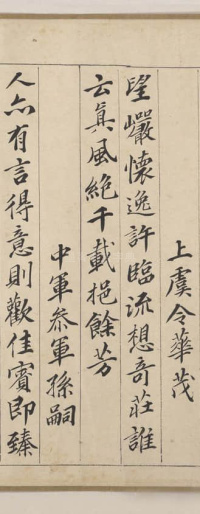 上虞令華茂
望巗懷逸許臨流想奇莊誰
云眞風絶千載挹餘芳
中軍叅軍孫嗣
人亦有言得意則歡佳賓即臻